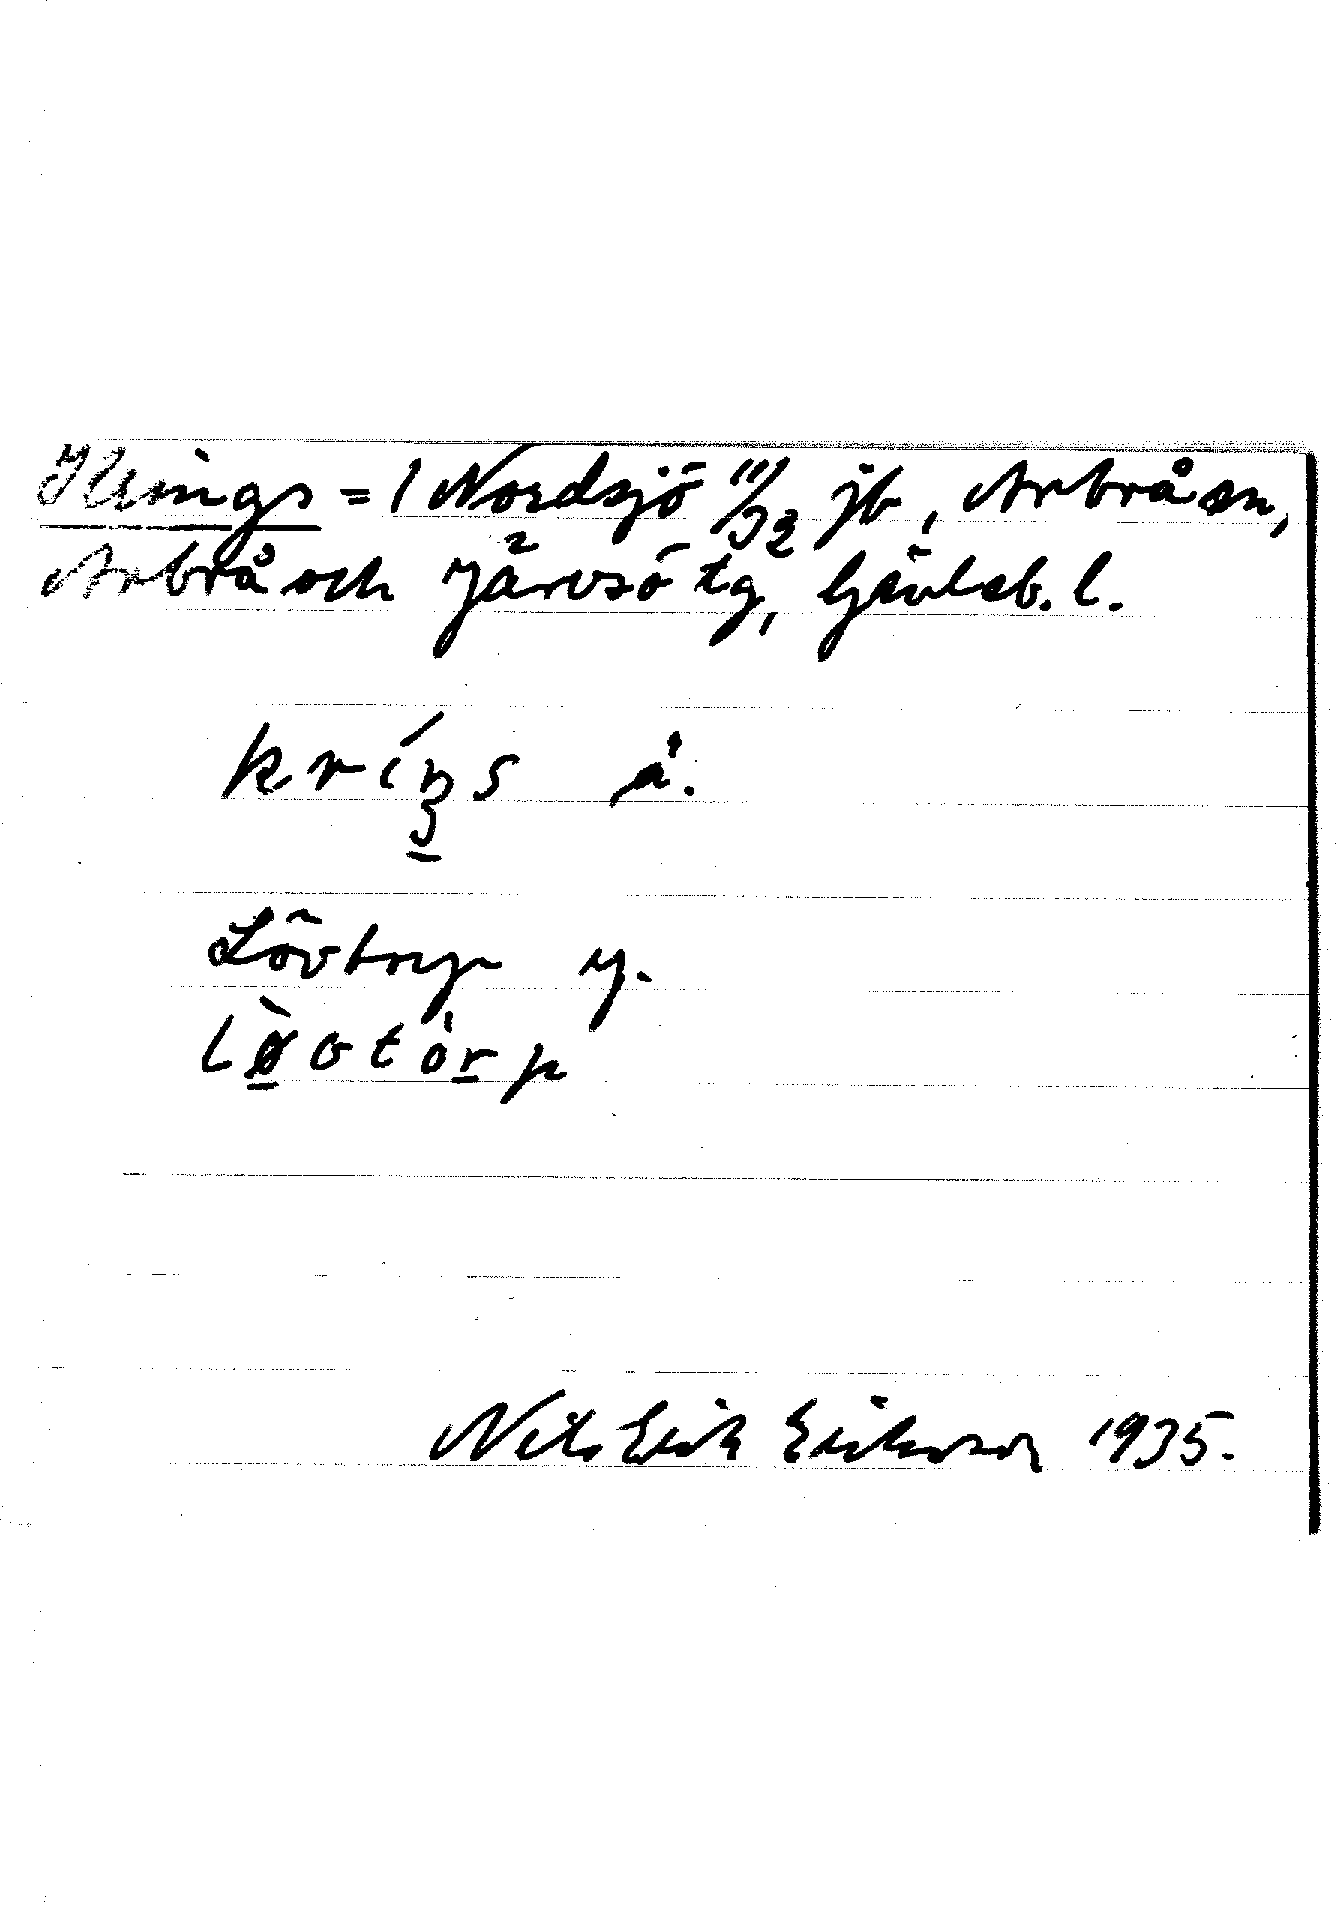 Krings = 1 Nordsjö 11/32 jb, Arbrå sn,
Arbrå och Järvsö tg, Gävleb. l.
kríŋs å.
Lövtorp y.
Nils Erik Erikson 1935.